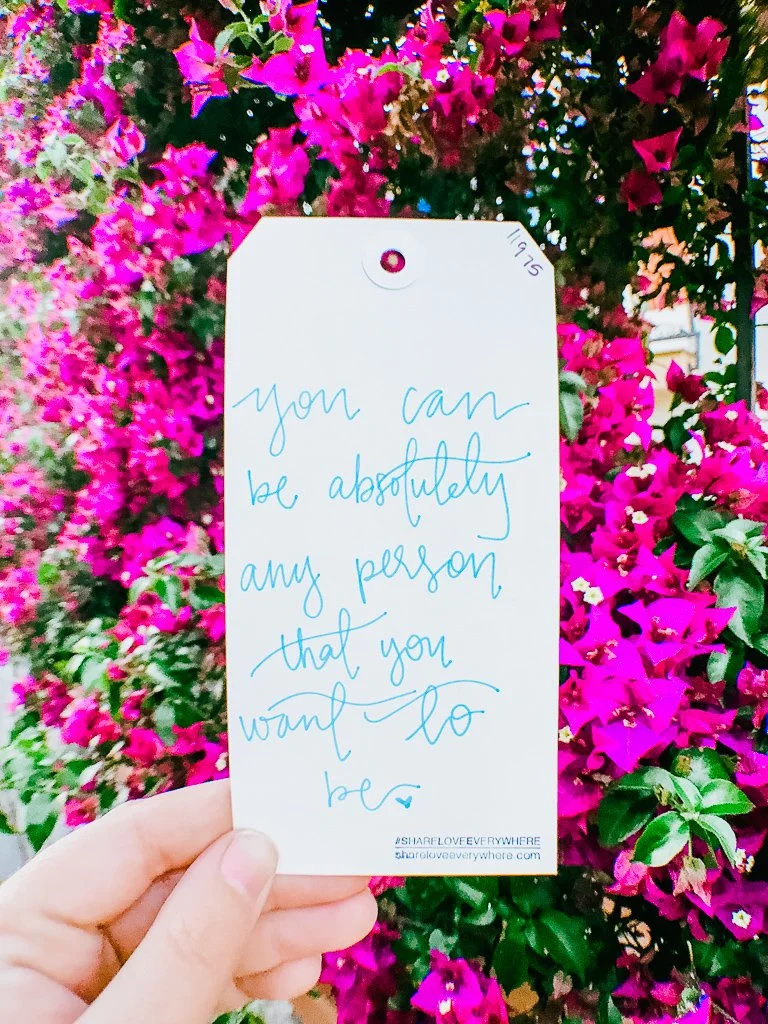 11975
you can
be absolutely
any person
that you
want to
be
#SHARELOVEEVERYWHERE
shareloveeverywhere.com